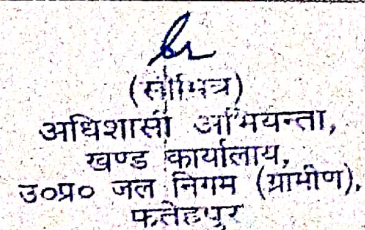 (सौमित्र)
अधिशासी अभियन्ता,
खण्ड कार्यालाय,
उ०प्र० जल निगम (ग्रामीण),
फतेहपुर